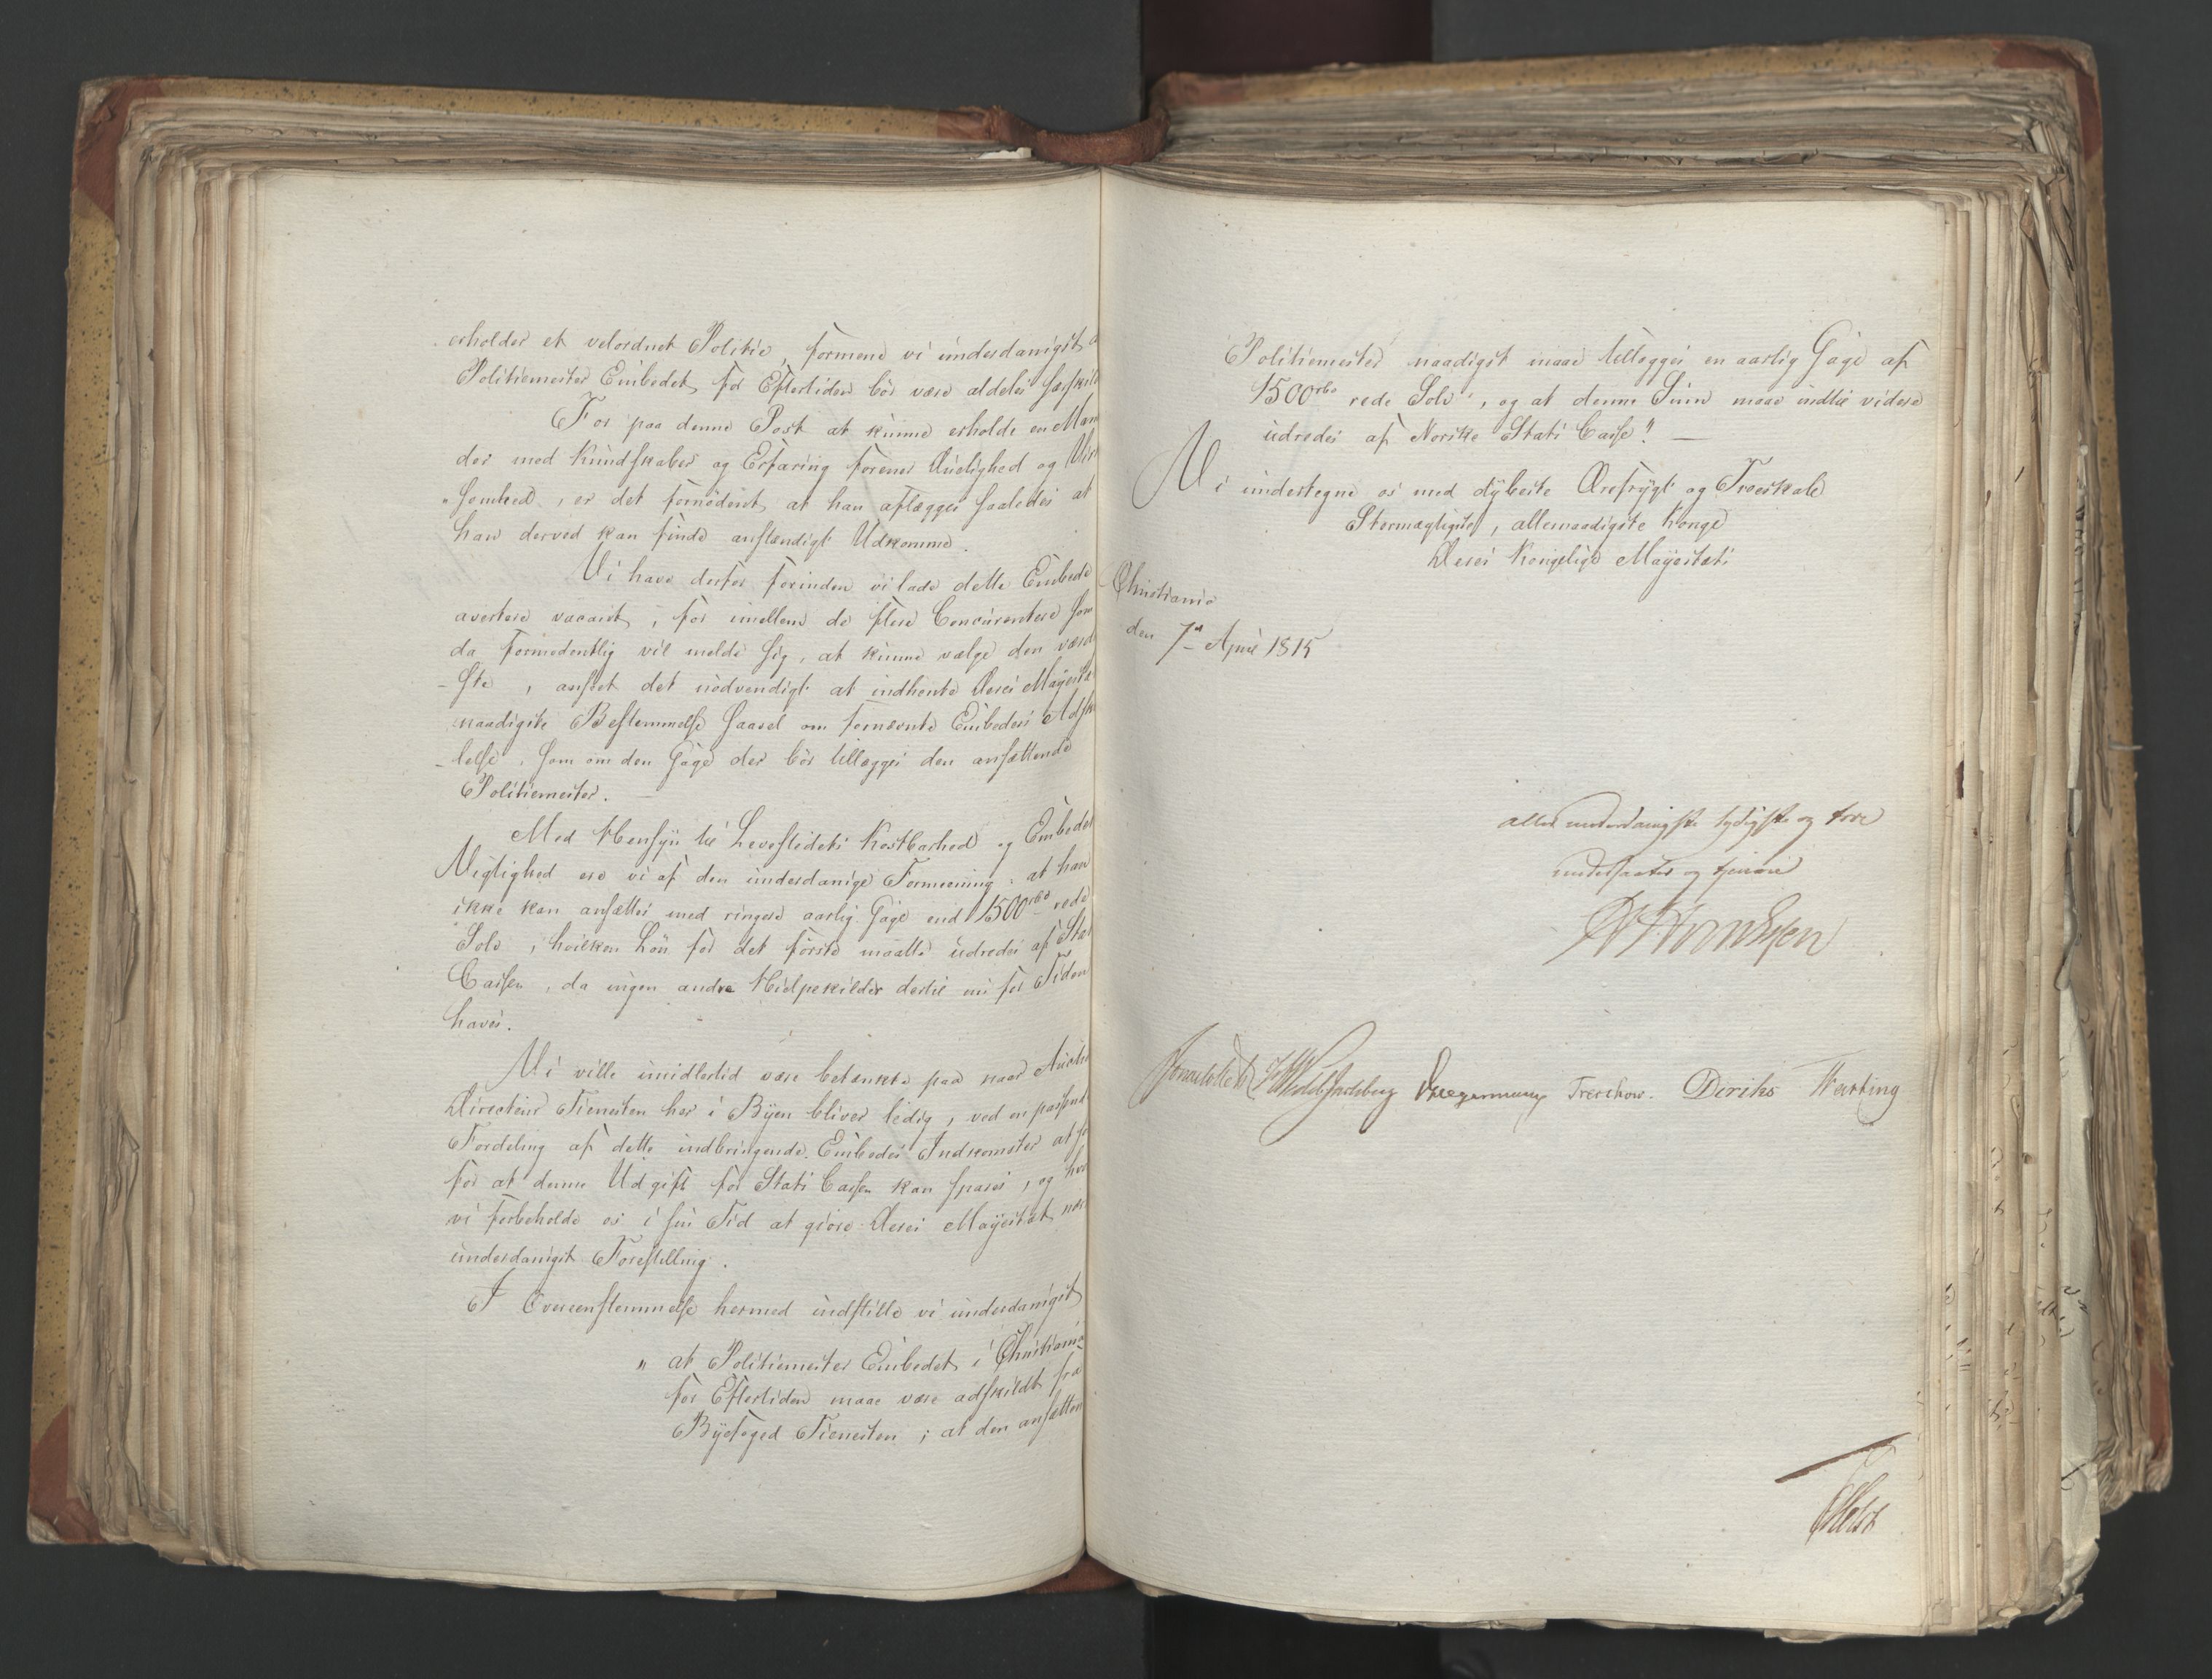 erholder et velordnet Politie, formene vi underdanigst
Politiemester Embedet for Eftertiden bör være aldeles særskil
For paa denne Post at kunne erholde en Man
der med Kundskaber og Erfaring forener Duelighed og Vir
"somhed, er det fornödent at han aflægges saaledes at
han derved kan finde anstændigt Udkomme.
Vi have derfor forinden vi lade dette Embede
avertere vacant, for imellem de flere Concurentere som
da formodentlig vil melde sig, at kunne vælge den værd
-ste, ansöet det nödvendigt at indhente Deres Mayestæ
naadigste Bestemmelse saavel om fornævnte Embeders Adsk
-lelse, som om den Gage der bör tillægges den ansættende
Politiemester. —
Med Hensyn til Levestedets Kostbarhed og Embedet
Vigtighed ere vi af den underdanige Formeening: at han
ikke kan ansættes med ringere aarlig Gage end 1500 rbd rede
Sölv, hvilken Lön for det förste maatte udredes af Stat
Cassen, da ingen andre Hielpekilder dertil nu for Tiden
haves.
Vi ville imidlertid være betænkte paa naar Auctio
Directeur Tienesten her i Byen bliver ledig, ved en passend
Fordeling af dette indbringende Embedes Indkomster at
for at denne Udgift for Stats Cassen kan spares, og hvo
vi forbeholde os i sin Tid at giöre Deres Mayestæt nær
underdanigst Forestilling.
I Overeenstemmelse hermed indstille vi underdanigst
" at Politiemester Embedet i Christiania
for Eftertiden maae være adskildt fra
Byefoged Tienesten; at den ansætten
Politiemester naadigst maae tillægges en aarlig Gage af
1500 rbd rede Sölv, og at denne Sum maae indtil videre
udredes af Norske Stats Casse." —
Vi undertegne os med dybeste Ærefrygt og Troeskab
Stormægtigste, allernaadigste Konge
Deres Kongelige Mayestæts
Christiania
den 7de April 1815
allerunderdanigste lydigste og troe
undersaatter og tjenere
Sommerhielm Wedel Jarlsberg Treschow. Diriks Hertzberg
Holst